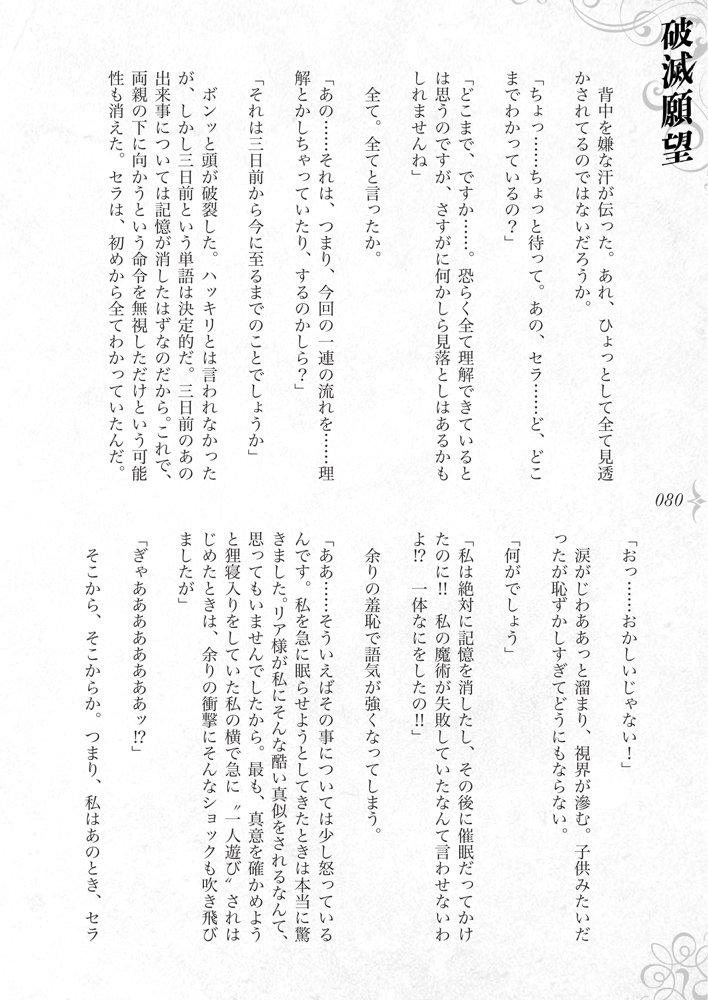 破滅願望
　背中を嫌な汗が伝った。あれ、ひょっとして全て見透
かされてるのではないだろうか。
「ちょっ……ちょっと待って。あの、セラ……ど、どこ
までわかっているの？」
「どこまで、ですか……。恐らく全て理解できていると
は思うのですが、さすがに何かしら見落としはあるかも
しれませんね」
　全て。全てと言ったか。
「あの……それは、つまり、今回の一連の流れを……理
解とかしちゃっていたり、するのかしら？」
「それは三日前から今に至るまでのことでしょうか」
　ボンッと頭が破裂した。ハッキリとは言われなかった
が、しかし三日前という単語は決定的だ。三日前のあの
出来事については記憶が消したはずなのだから。これで、
両親の下に向かうという命令を無視しただけという可能
性も消えた。セラは、初めから全てわかっていたんだ。
080
「おっ……おかしいじゃない！」
　涙がじわああっと溜まり、視界が滲む。子供みたいだ
ったが恥ずかしすぎてどうにもならない。
「何がでしょう」
「私は絶対に記憶を消したし、その後に催眠だってかけ
たのに!!　私の魔術が失敗していたなんて言わせないわ
よ!?　一体なにをしたの!!」
　余りの羞恥で語気が強くなってしまう。
「ああ……そういえばその事については少し怒っている
んです。私を急に眠らせようとしてきたときは本当に驚
きました。リア様が私にそんな酷い真似をされるなんて、
思ってもいませんでしたから。最も、真意を確かめよう
と狸寝入りをしていた私の横で急に〝一人遊び〟されは
じめたときは、余りの衝撃にそんなショックも吹き飛び
ましたが」
「ぎゃああああああああッ!?」
　そこから、そこからか。つまり、私はあのとき、セラ